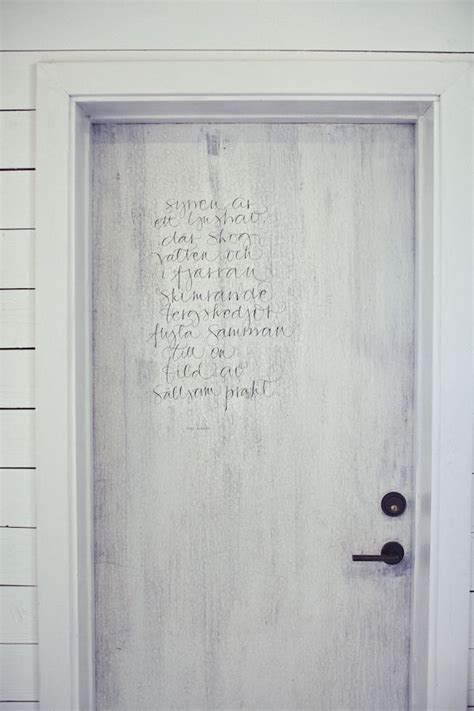 synen är
ett ljushav
där skog
vatten och
i fjärran
skimrande
bergskedjor
flyta samman
till en
bild av
sällsam prakt